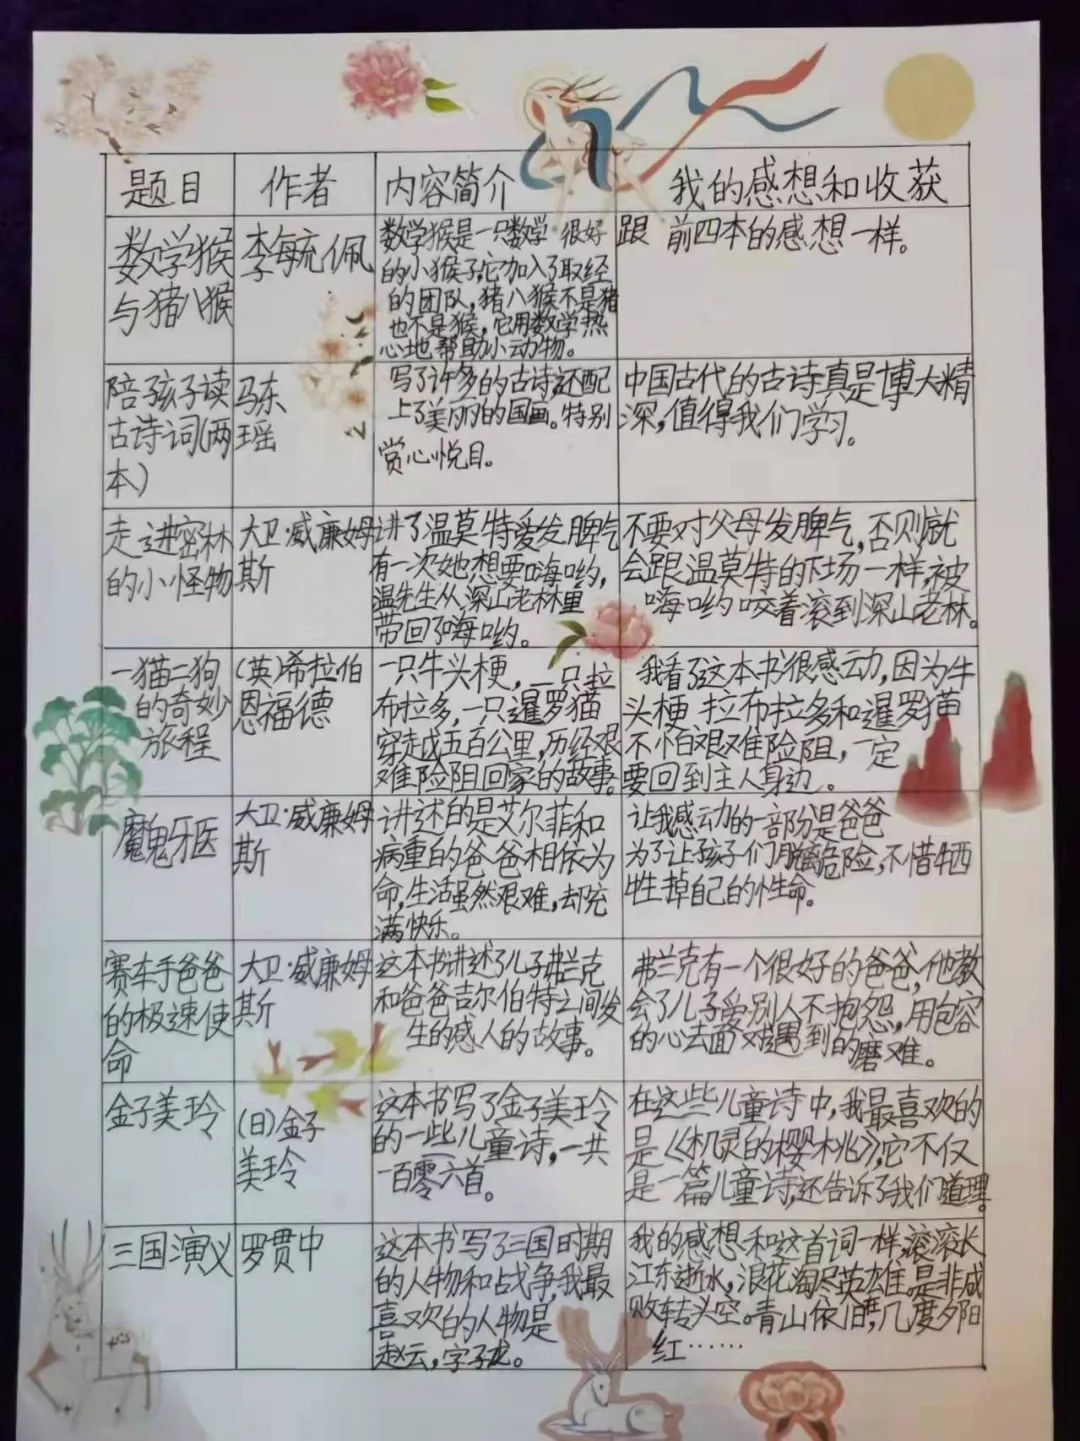 题目 作者 内容简介 我的感想和收获
数学猴
与猪八猴
李毓佩
数学猴是一只数学 很好
的小猴子,它加入了取经
的团队,猪八猴不是猪
也不是猴,它用数学热
心地帮助小动物。
跟 前四本的感想一样。
陪孩子读
古诗词(两
本)
马东
瑶
写了许多的古诗还配
上了美丽的国画。特别
赏心悦目。
中国古代的古诗真是博大精
深,值得我们学习。
走进密林
的小怪物
大卫·威廉姆
斯
讲了温莫特爱发脾气
有一次她想要嗨哟,
温先生从深山老林里
带回了嗨哟。
不要对父母发脾气,否则就
会跟温莫特的下场一样,被
嗨哟咬着滚到深山老林。
一猫二狗
的奇妙
旅程
(英)希拉·伯
恩福德
一只牛头梗,一只拉
布拉多,一只暹罗猫
穿走成五百公里,历经艰
难险阻回家的故事。
我看了这本书很感动,因为牛
头梗 拉布拉多和暹罗猫
不怕艰难险阻,一定
要回到主人身边。
魔鬼牙医
大卫·威廉姆
斯
讲述的是艾尔菲和
病重的爸爸相依为
命,生活虽然艰难,却充
满快乐。
让我感动的一部分是爸爸
为了让孩子们脱离危险,不惜牺
牲掉自己的性命。
赛车手爸爸
的极速使
命
大卫·威廉姆
斯
这本书讲述了儿子弗兰克
和爸爸吉尔伯特之间发
生的感人的故事。
弗兰克有一个很好的爸爸,他教
会了儿子受别人不抱怨,用包容
的心去面对遇到的磨难。
金子美玲
(日)金子
美玲
这本书写了金子美玲
的一些儿童诗,一共
一百零六首。
在这些儿童诗中,我最喜欢的
是《机灵的樱桃》,它不仅
是一篇儿童诗,还告诉了我们道理。
三国演义
罗贯中
这本书写了三国时期
的人物和战争,我最
喜欢的人物是
赵云,字子龙。
我的感想和这首词一样,滚滚长
江东逝水,浪花淘尽英雄。是非成
败转头空。青山依旧,几度夕阳
红……